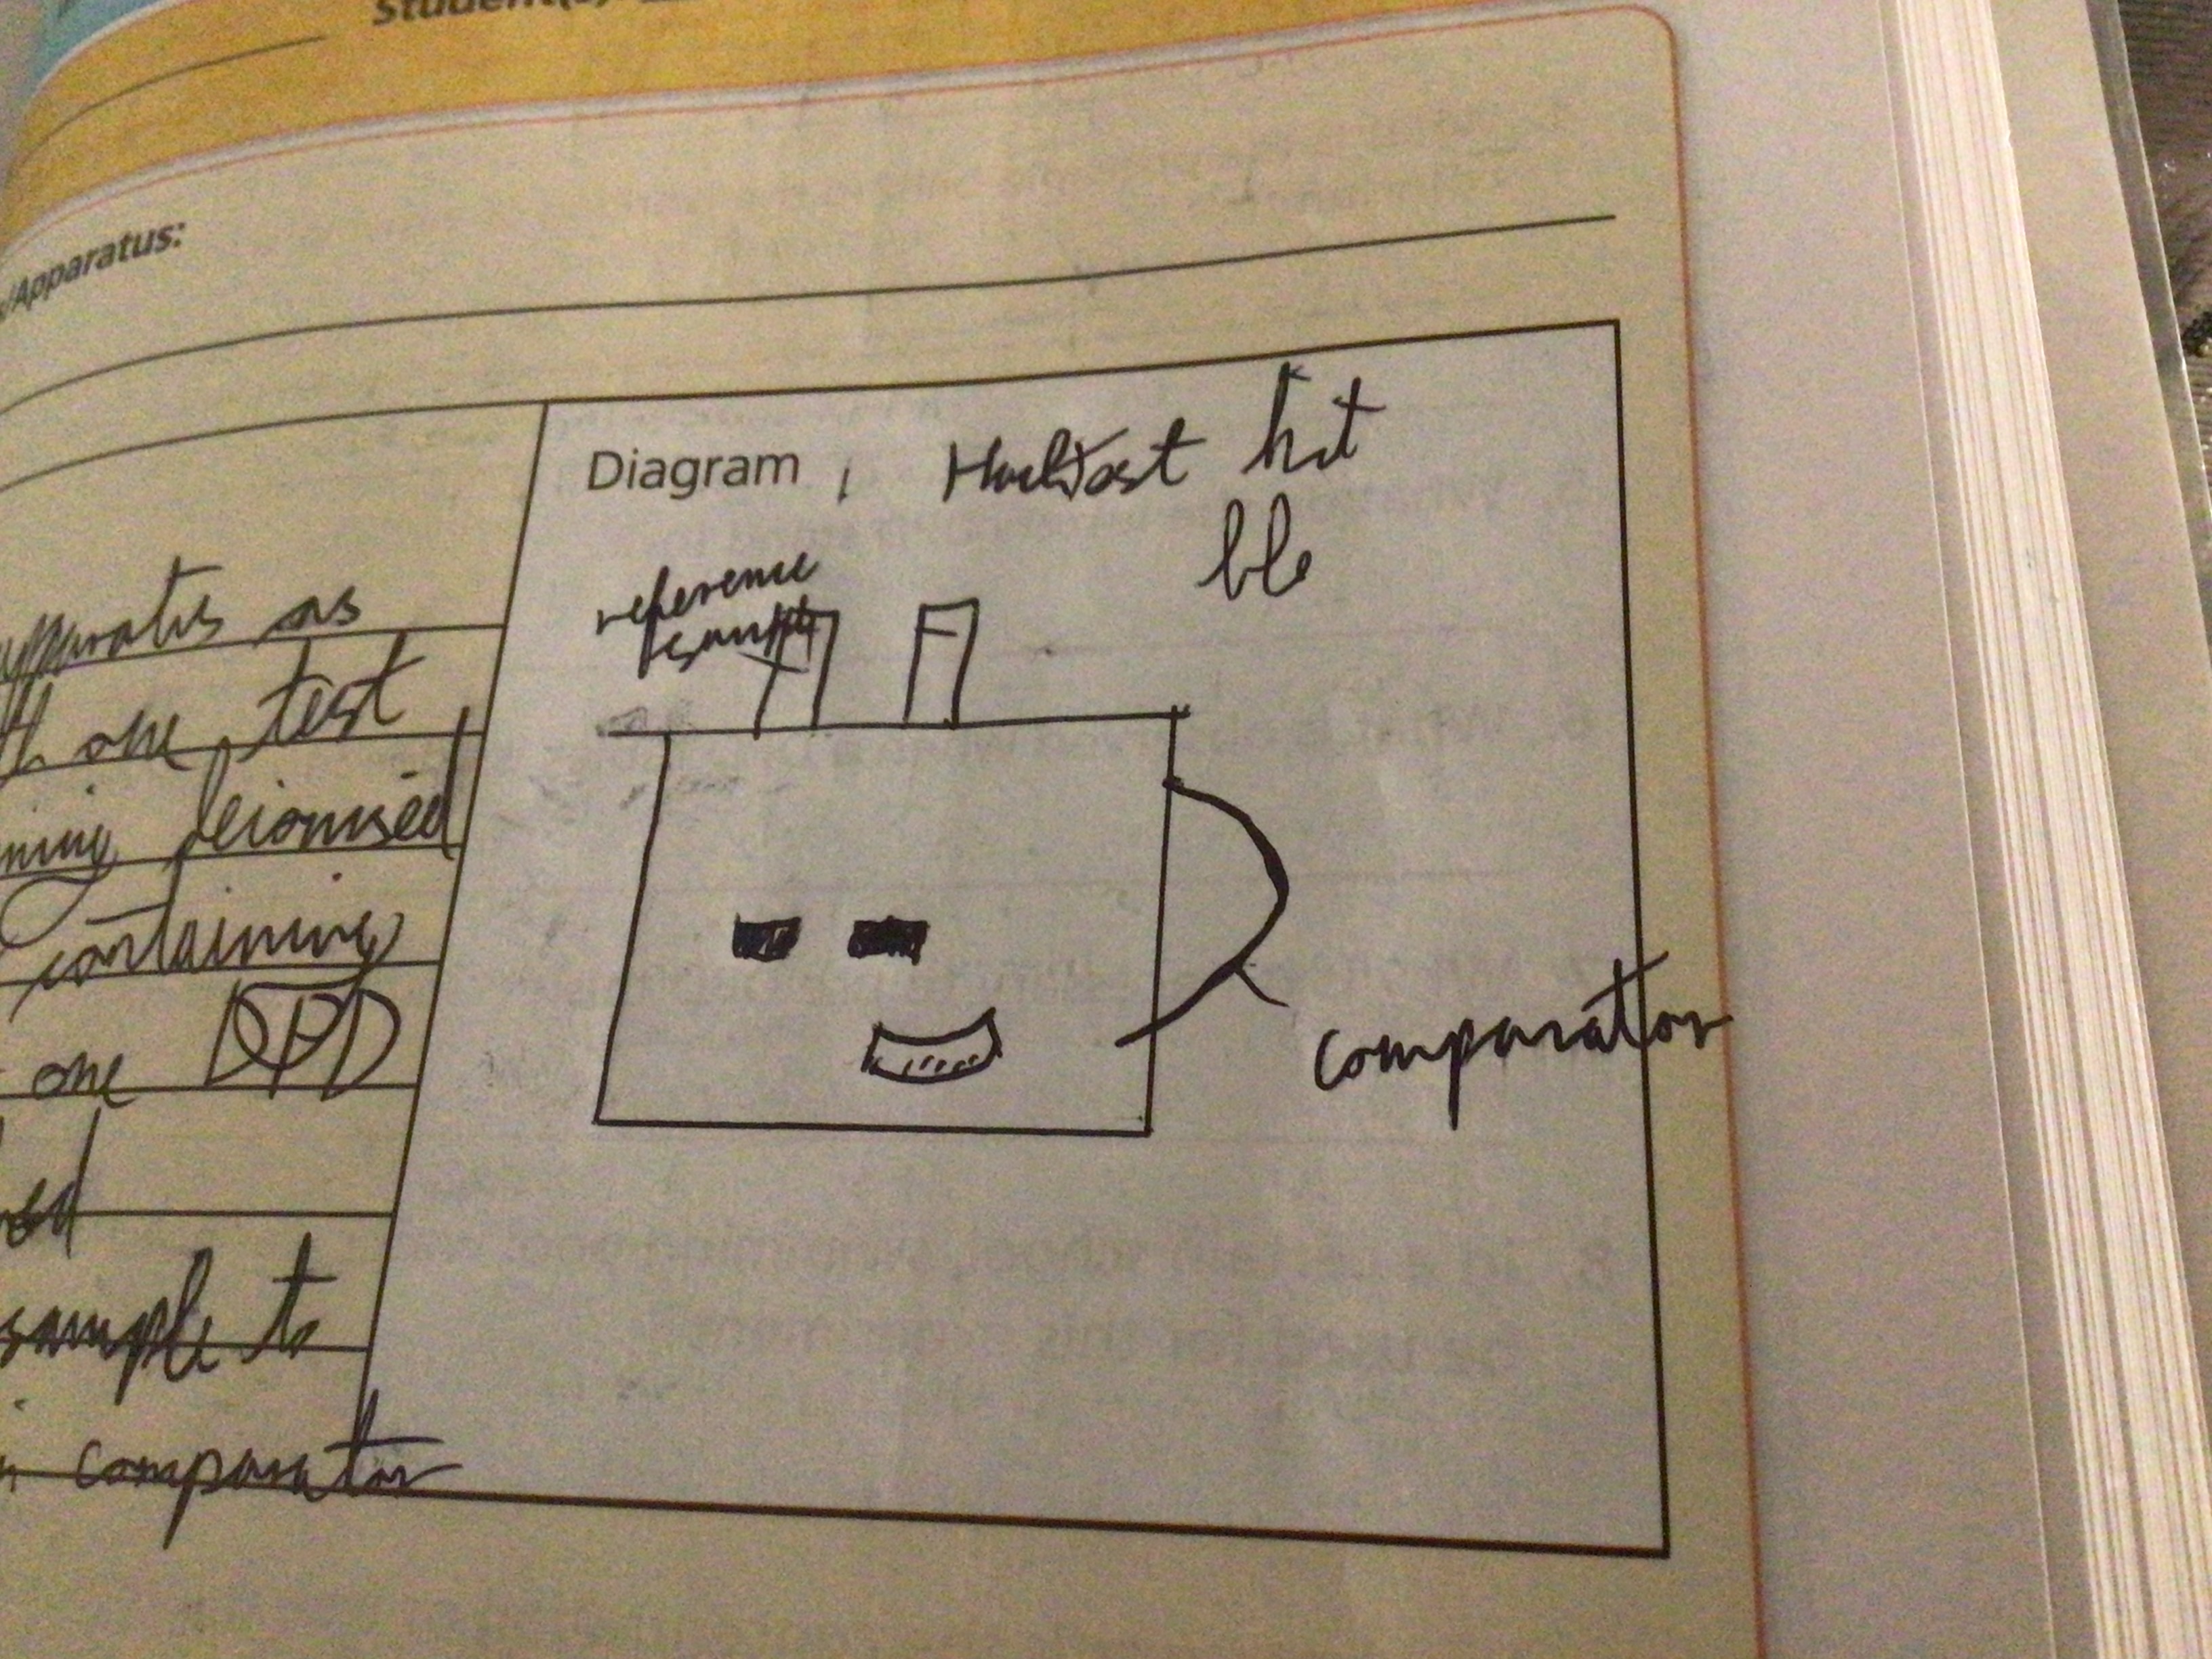 Student(s)
/Apparatus:
Diagram , test kit
reference
sample
apparatus as
one test
deionised
containing
one DPD
sample to
comparator
comparator